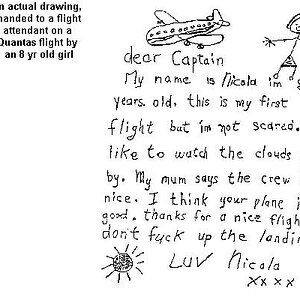 n actual drawing,
handed to a flight
attendant on a
Quantas flight by
an 8 yr old girl
dear Captain
My name is Nicola im
years old, this is my first
flight but im not scared.
like to watch the clouds
by. My mum says the crew
nice. I think your plane i
good. thanks for a nice fligh
don't fuck up the landi
LUV Nicola
XXXX